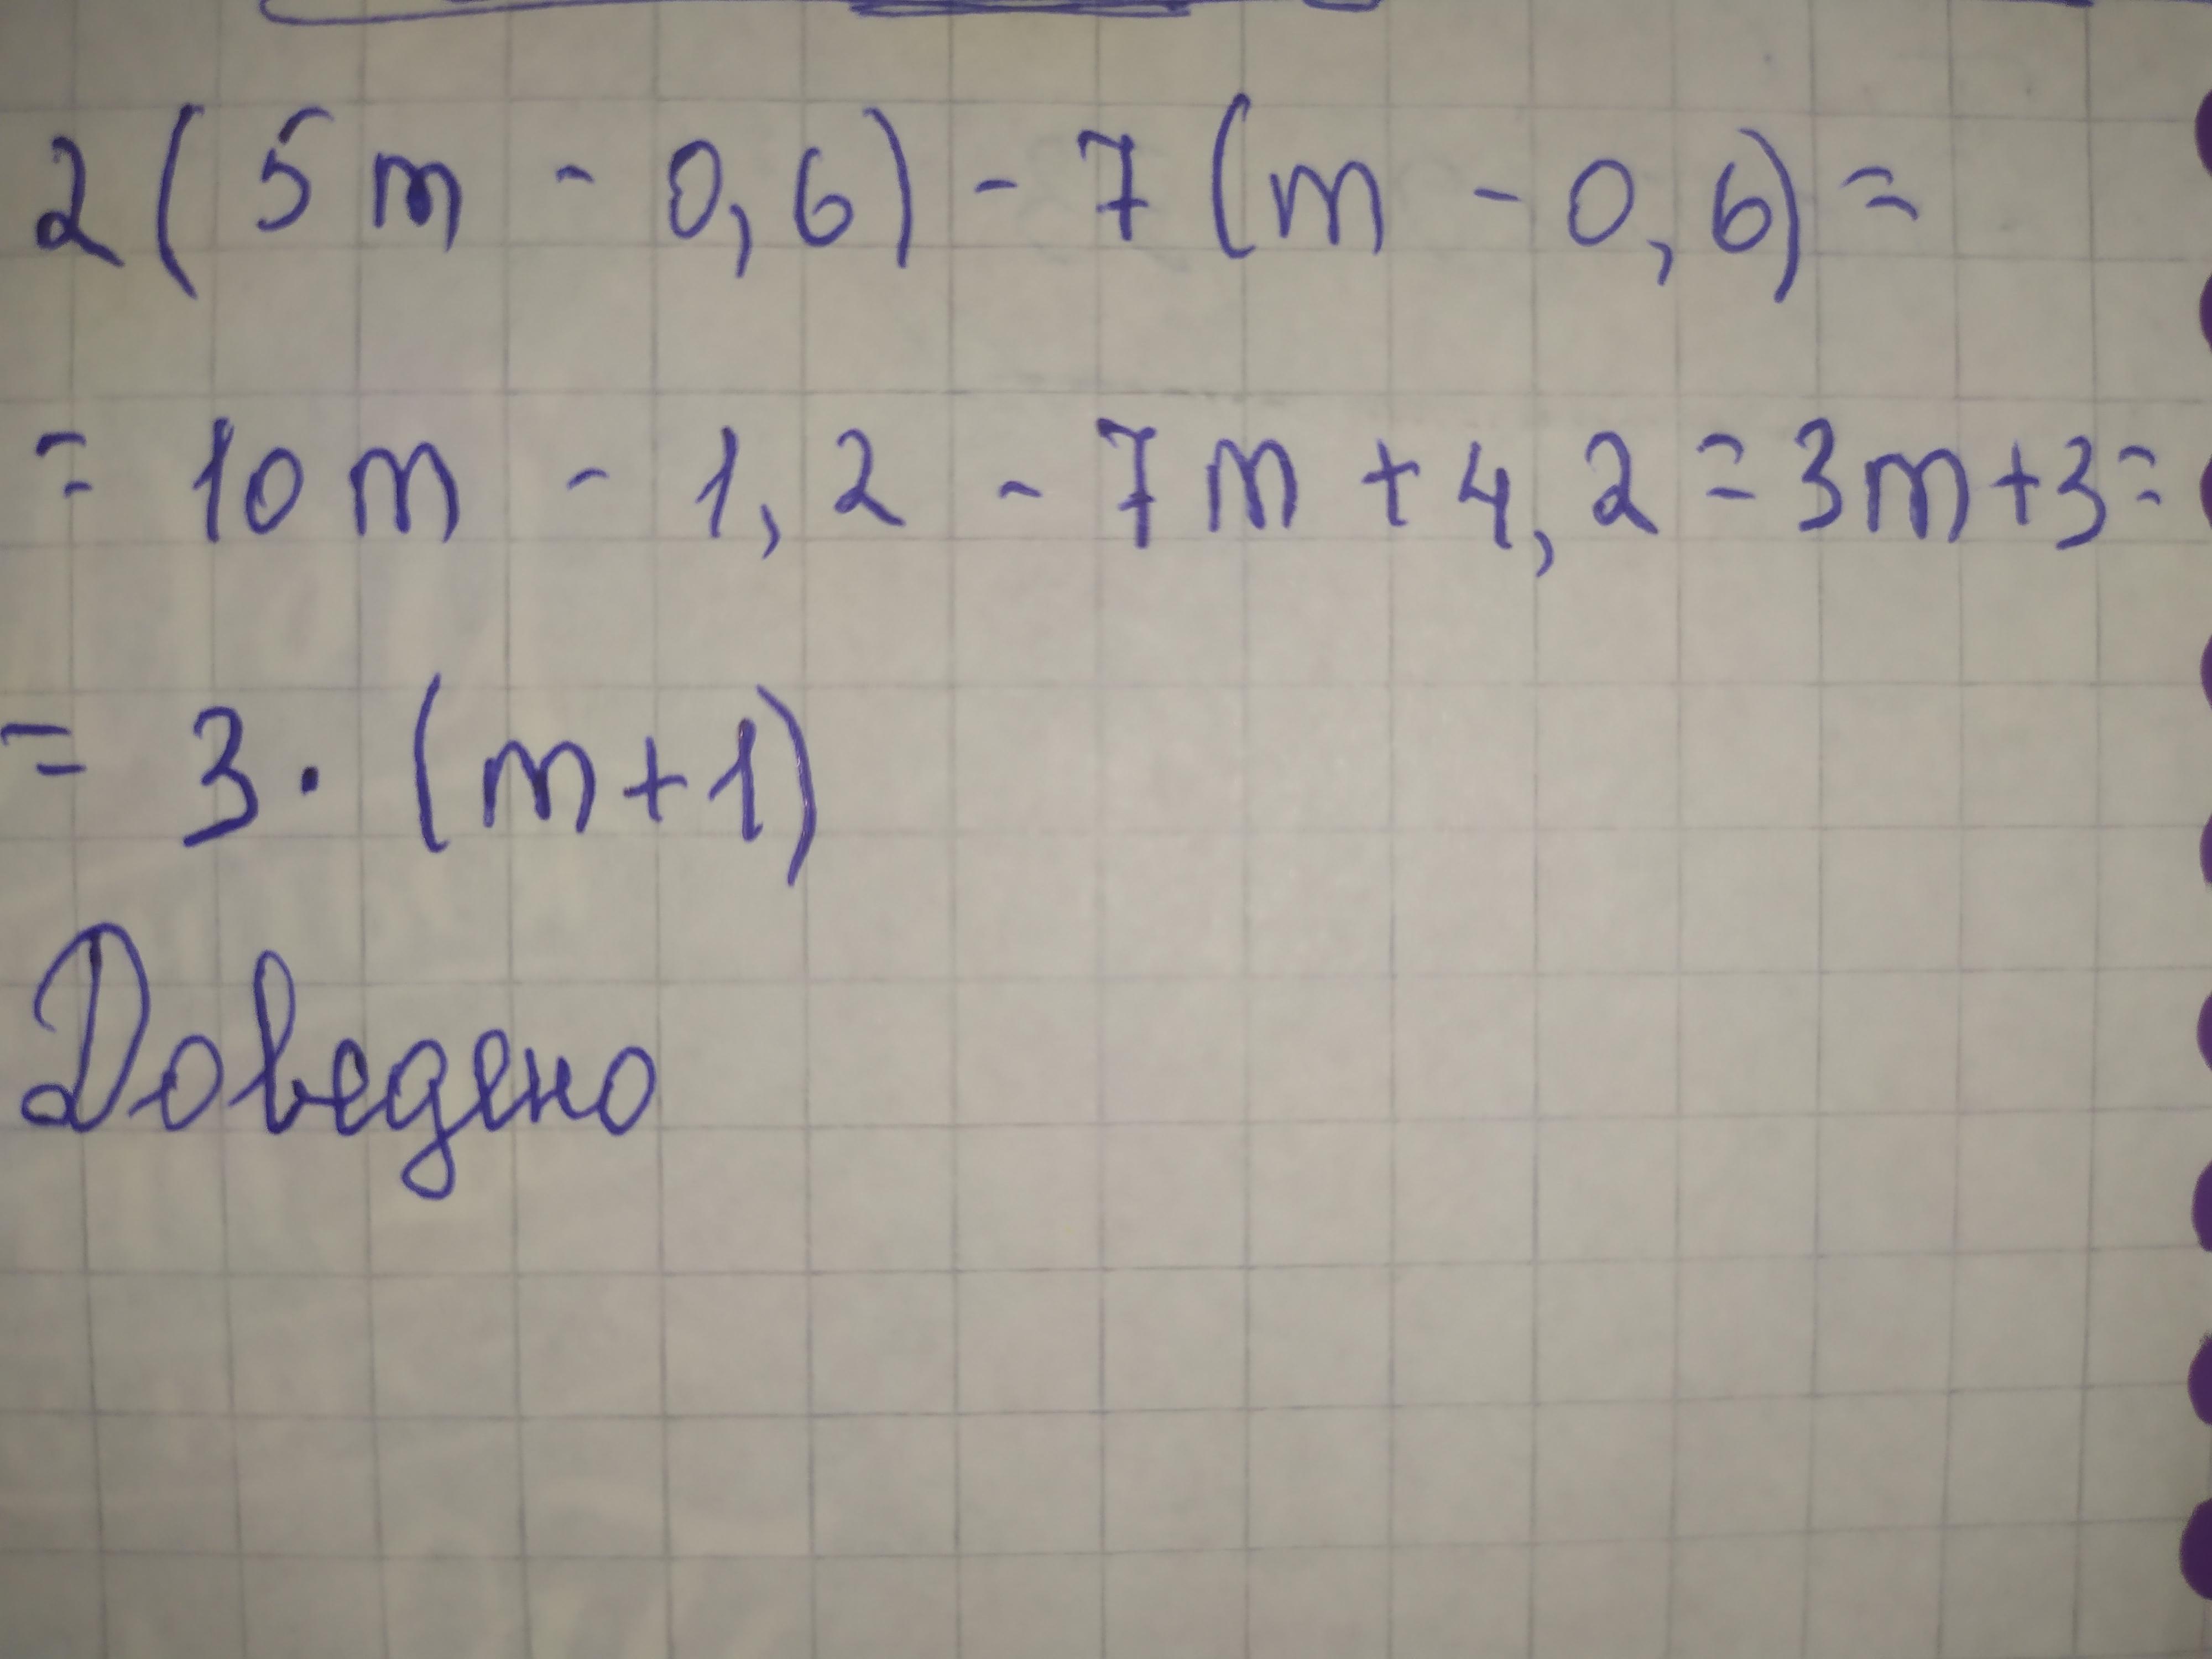 2(5m - 0,6) - 7(m - 0,6) =
= 10m - 1,2 - 7m + 4,2 = 3m+3 =
= 3 · (m+1)
Доведено